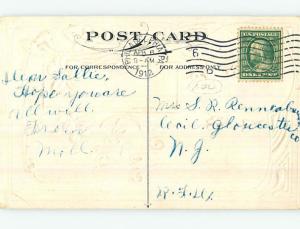 POST CARD
FOR CORRESPONDENCE
FOR ADDRESS ONLY
APR 6
8-AM
1912
6
Dear Sallie,
Hope you are
all well.
From
Mill
Mrs S. R.
Cecil, Gloucester
Co
N. J.
R. F. D.